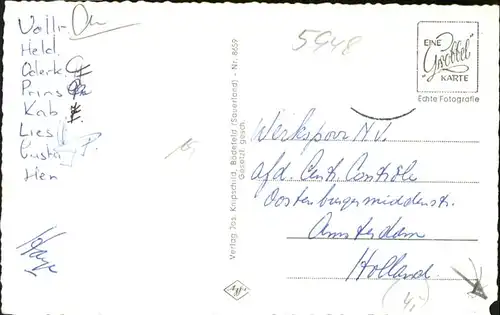 Vollr.
Held.
Oderk
Prins
Kab.
Lies
P.
Hen
5948
EINE
"Grobbel"
KARTE
Echte Fotografie
Verlag Jos. Knipschild, Bödefeld (Sauerland) - Nr. 8659
Gesetzl. gesch.
Agfa
Werkspoor N.V.
afd. Centr. Contrôle
Oostenburgermiddenstr.
Amsterdam
Holland.